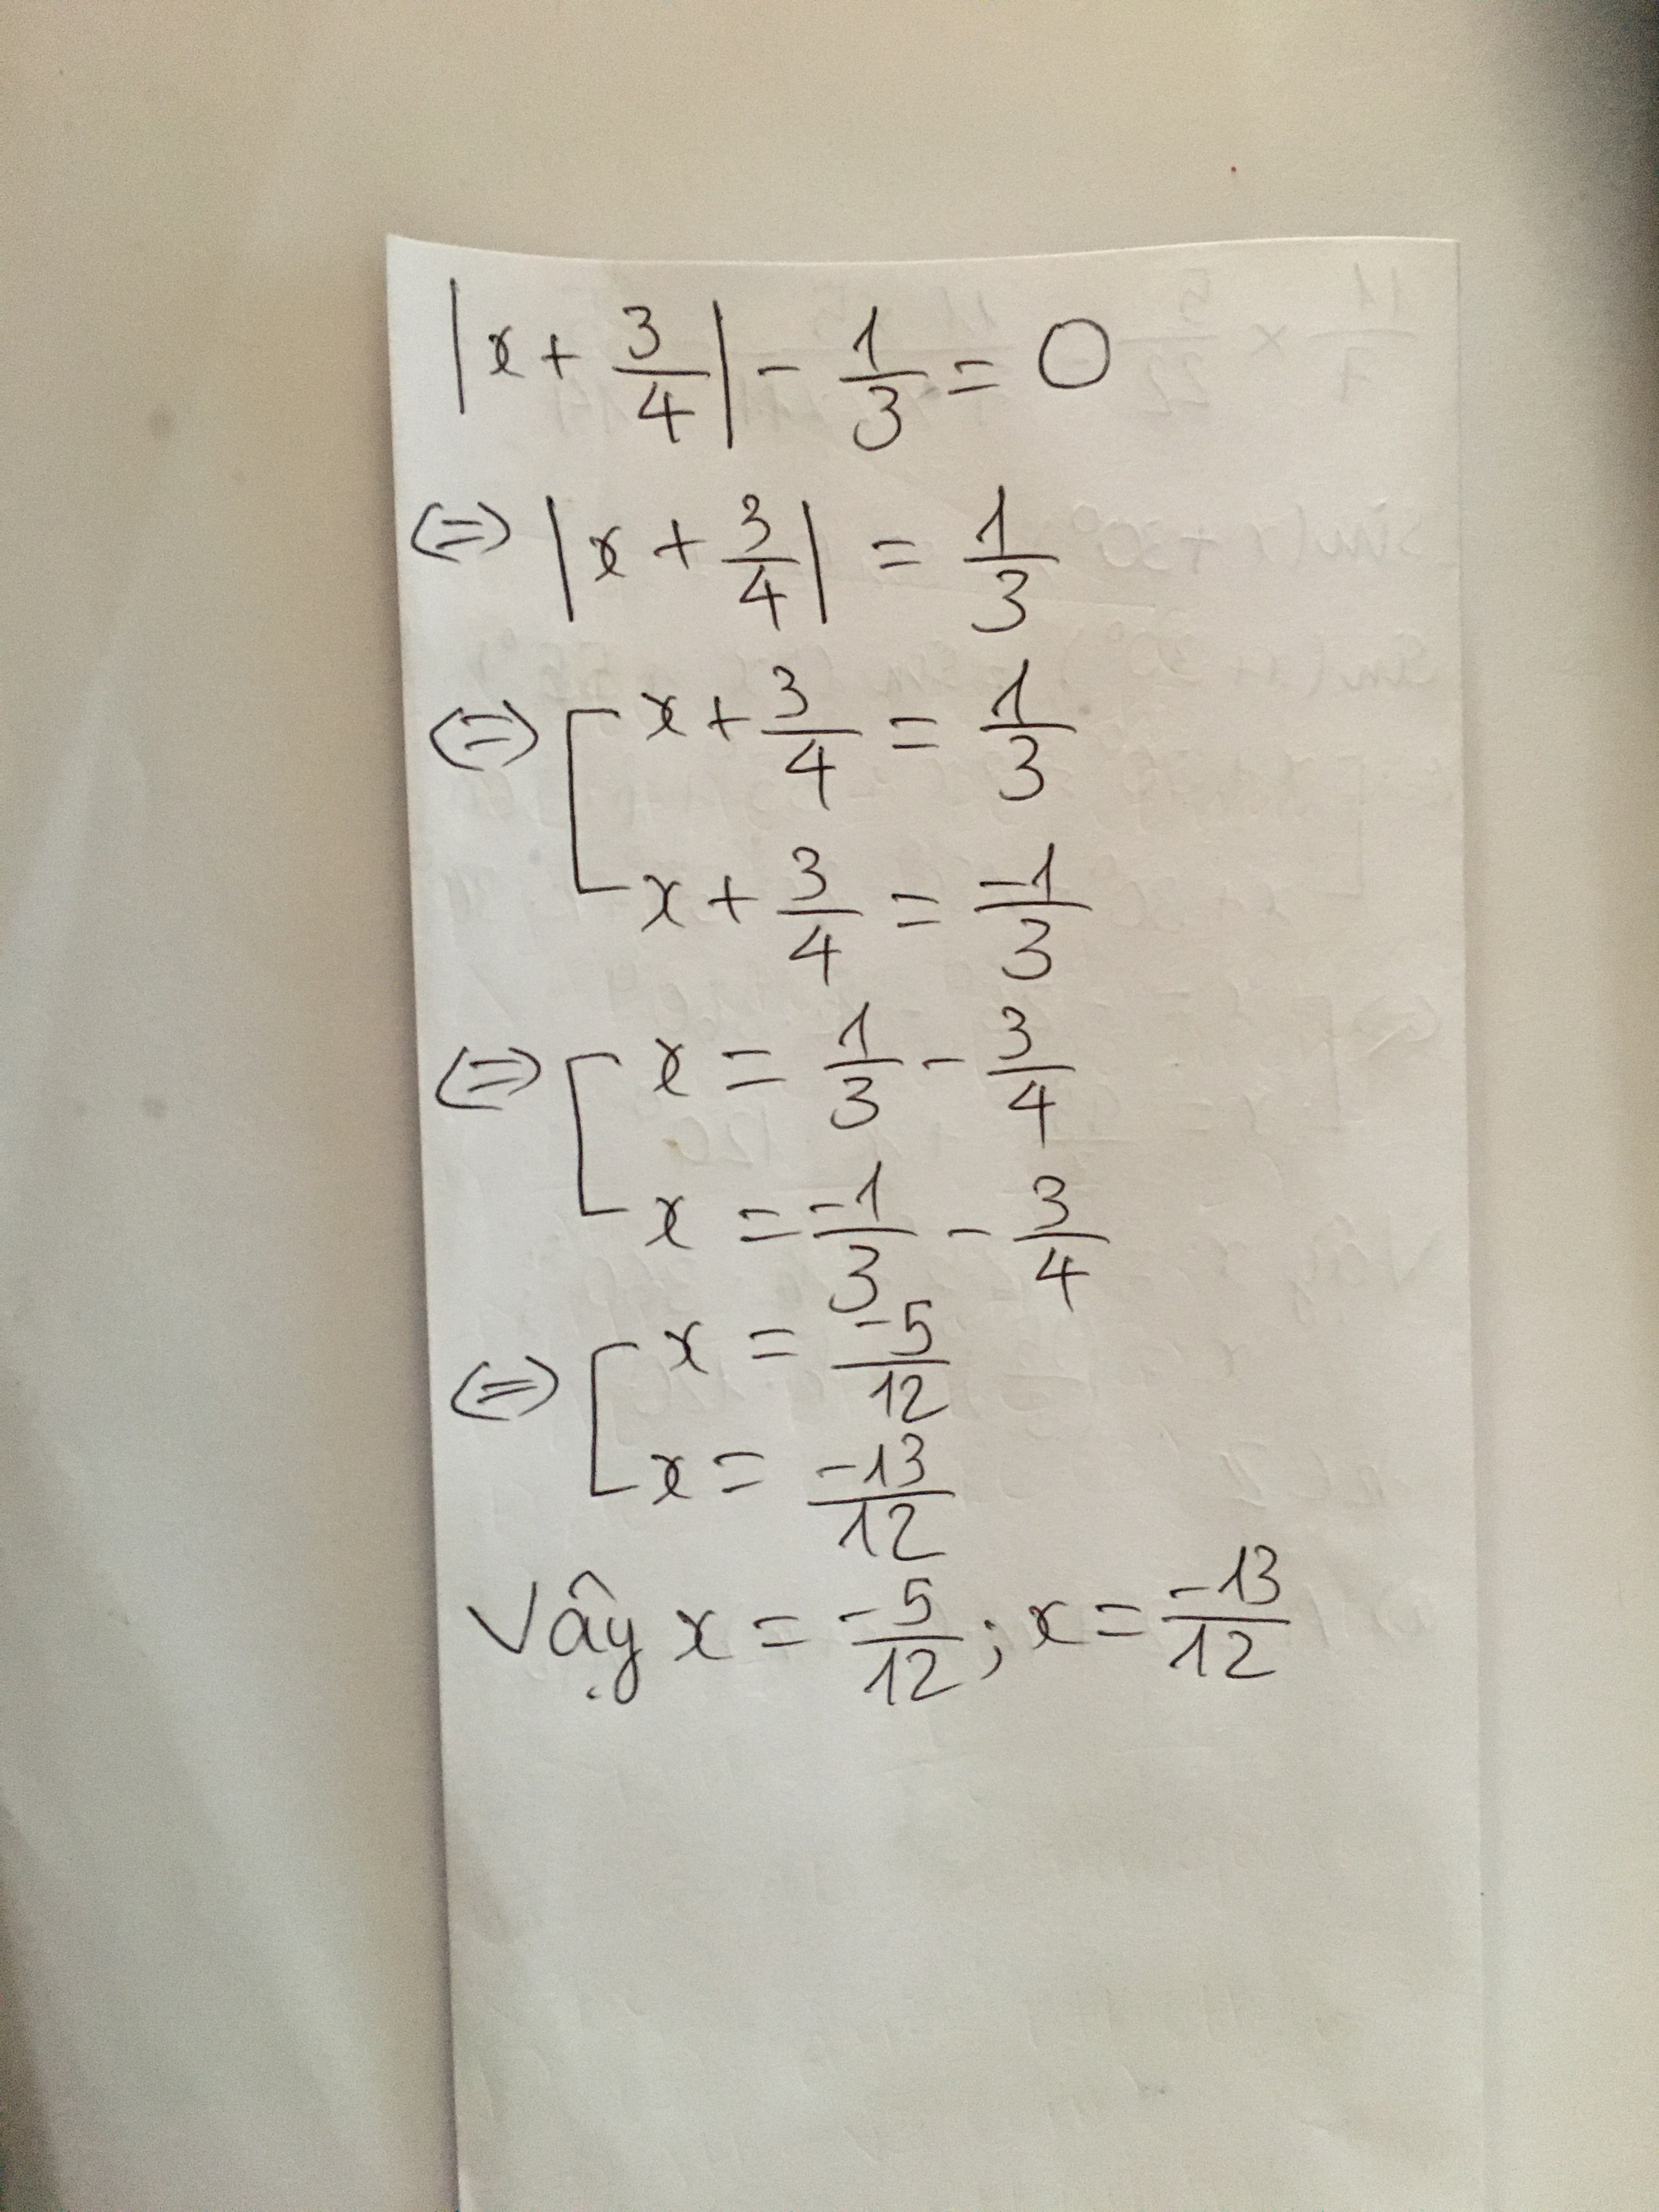 |x + 3/4| - 1/3 = 0
(=) |x + 3/4| = 1/3
(=) [ x + 3/4 = 1/3
x + 3/4 = -1/3
(=) [ x = 1/3 - 3/4
x = -1/3 - 3/4
(=) [ x = -5/12
x = -13/12
Vậy x = -5/12 ; x = -13/12